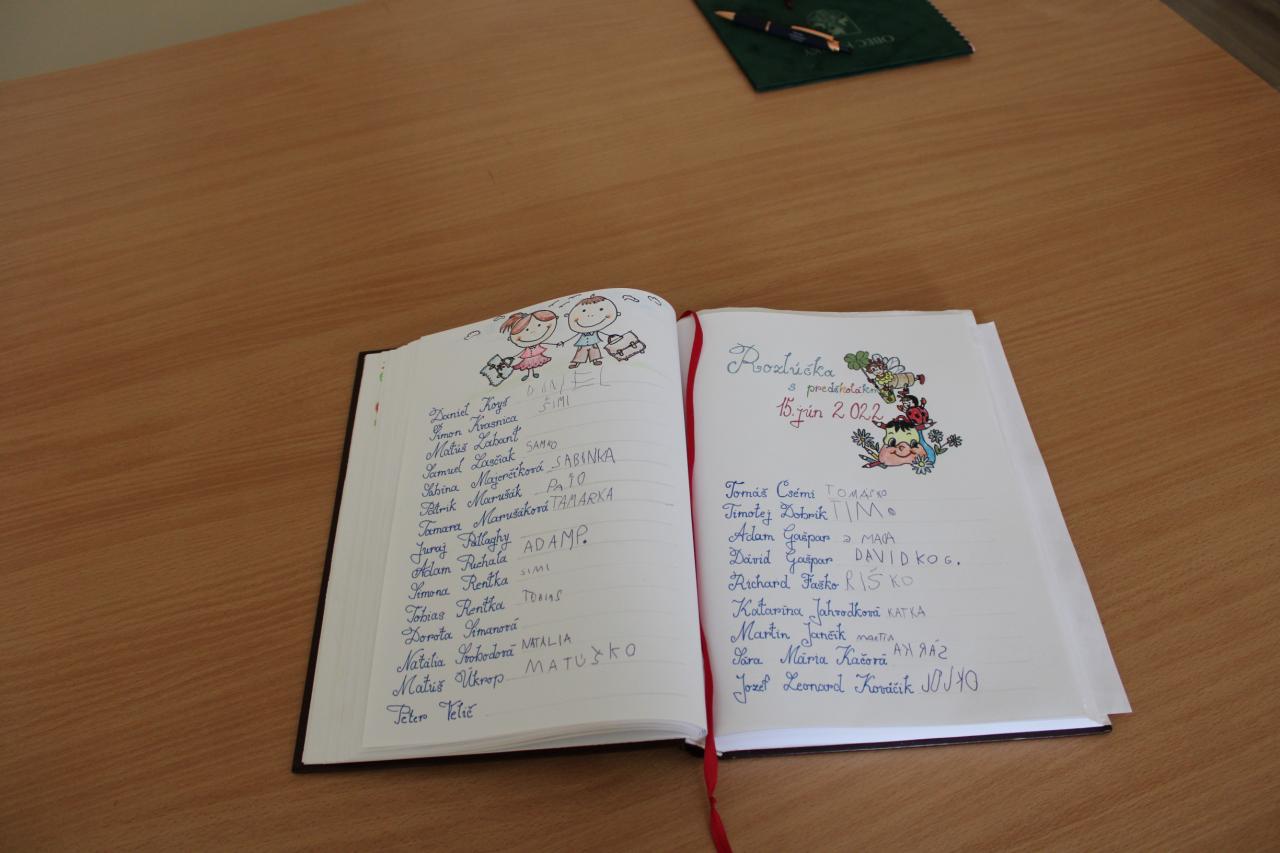 OBEC
Daniel Koyš DANIEL
Šimon Krasnica ŠIMI
Matúš Labant
Samuel Lasčiak SAMKO
Sabina Majerčíková SABINKA
Patrik Marušák PAŤO
Tamara Marušáková TAMARKA
Juraj Patlaghy
Adam Puchala ADAMP.
Simona Rentka SIMI
Tobias Rentka TOBIAS
Dorota Simanová
Natália Svobodová NATÁLIA
Matúš Úkrop MATÚŠKO
Peter Velič
Rozlúčka
s predškolákmi
15. jún 2022
Tomáš Csémi TOMAŠKO
Timotej Dobrík TIMo
Adam Gašpar
Dávid Gašpar DAVIDKO G.
Richard Faško RIŠKO
Katarína Jahrodková KATKA
Martin Jančík martin
Sára Mária Kačová ŠÁRKA
Jozef Leonard Kováčik JOJKO